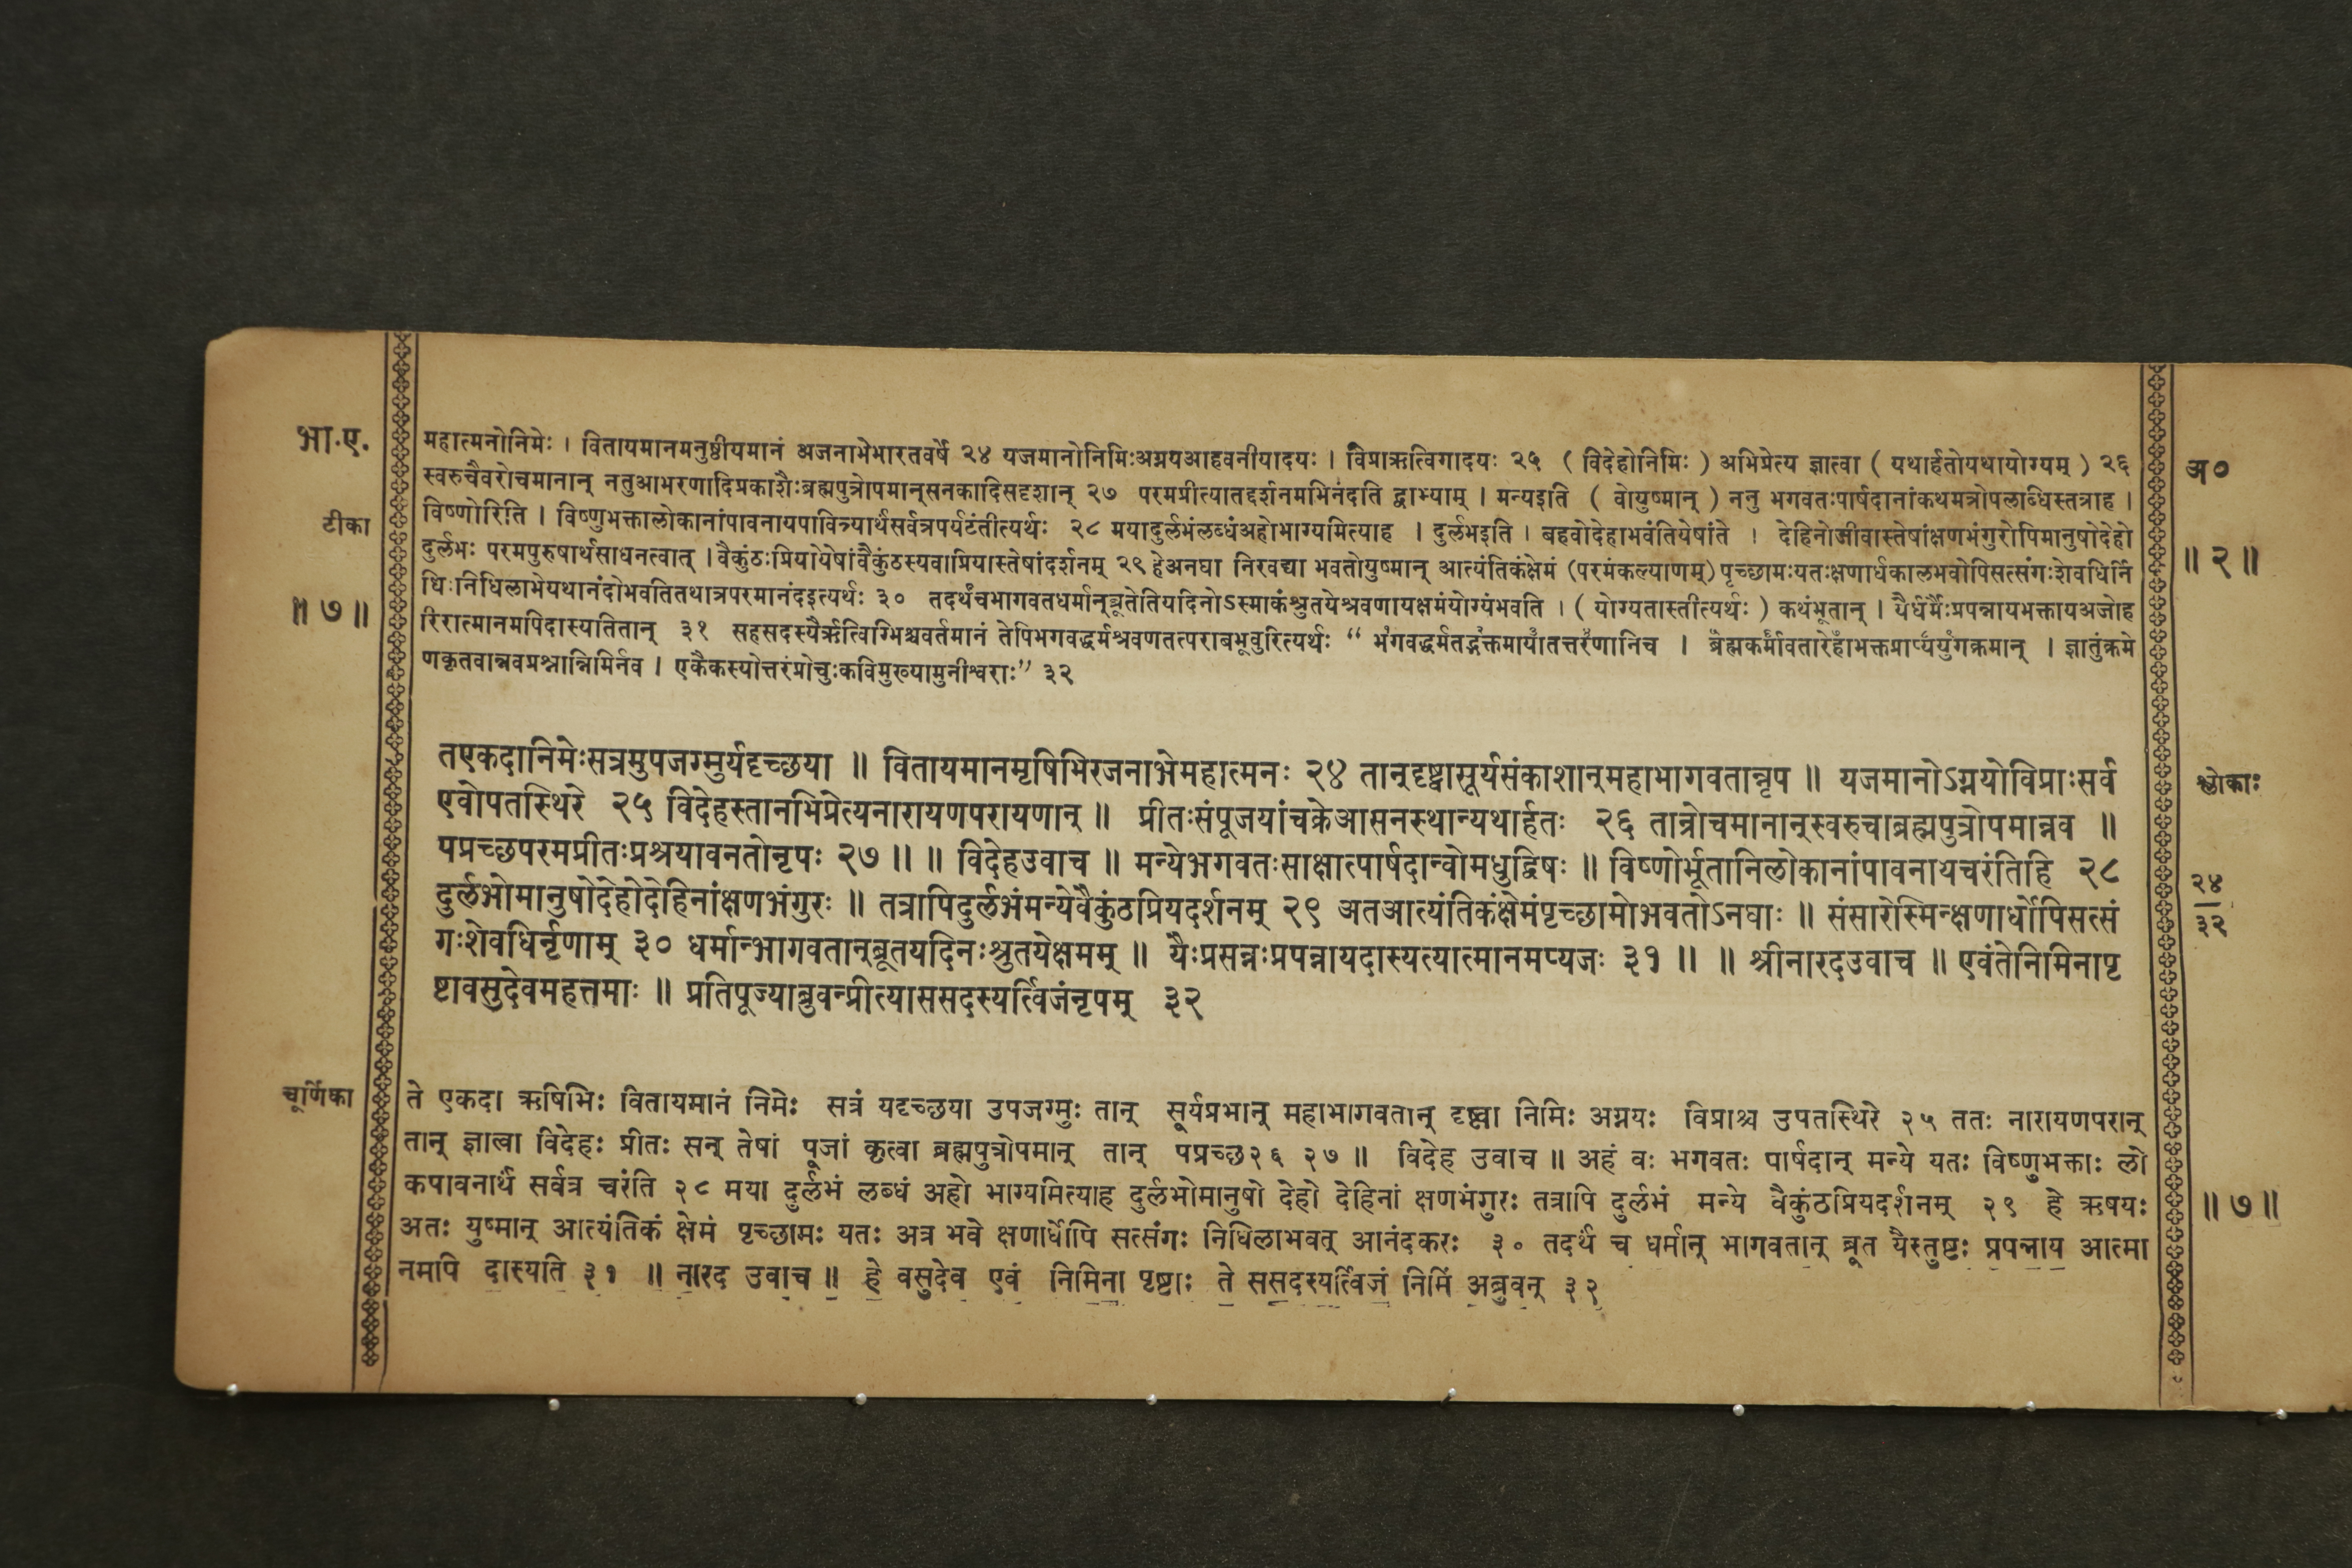 भा.ए.
टीका
॥ ७ ॥
महात्मनोनिमेः । वितायमानमनुष्ठीयमानं अजनाभेभारतवर्षे २४ यजमानोनिमिःअग्नयआहवनीयादयः । विप्राऋत्विगादयः २५ ( विदेहोनिमिः ) अभिप्रेत्य ज्ञात्वा ( यथार्हतोयथायोग्यम् ) २६
स्वरुचैवरोचमानान् नतुआभरणादिप्रकाशैःब्रह्मपुत्रोपमान्सनकादिसदृशान् २७ परमप्रीत्यातद्दर्शनमभिनंदति द्वाभ्याम् । मन्यइति ( वोयुष्मान् ) ननु भगवतःपार्षदानांकथमत्रोपलाब्धिस्तत्राह ।
विष्णोरिति । विष्णुभक्तालोकानांपावनायपावित्र्यार्थंसर्वत्रपर्यटंतीत्यर्थः २८ मयादुर्लभंलब्धंअहोभाग्यमित्याह । दुर्लभइति । बहवोदेहाभवंतियेषांते । देहिनोजीवास्तेषांक्षणभंगुरोपिमानुषोदेहो
दुर्लभः परमपुरुषार्थसाधनत्वात् । वैकुंठःप्रियोयेषांवैकुंठस्यवाप्रियास्तेषांदर्शनम् २९ हेअनघा निरवद्या भवतोयुष्मान् आत्यंतिकंक्षेमं (परमंकल्याणम्) पृच्छामःयतःक्षणार्धकालभवोपिसत्संगःशेवधिर्नि
धिःनिधिलाभेयथानंदोभवतितथात्रपरमानंदइत्यर्थः ३० तदर्थंचभागवतधर्मान्ब्रूतेतियदिनोऽस्माकंश्रुतयेश्रवणायक्षमंयोग्यंभवति । ( योग्यतास्तीत्यर्थः ) कथंभूतान् । यैर्धर्मैःप्रपन्नायभक्तायअजोह
रिरात्मानमपिदास्यतितान् ३१ सहसदस्यैर्ऋत्विग्भिश्चवर्तमानं तेपिभगवद्धर्मश्रवणतत्पराबभूवुरित्यर्थः “ भगवद्धर्मतद्भक्तमायातत्तरणानिच । ब्रह्मकर्मावतारेहाभक्तप्राप्यंयुगक्रमान् । ज्ञातुंक्रमे
णकृतवान्नवप्रश्नान्निमिर्नव । एकैकस्योत्तरंप्रोचुःकविमुख्यामुनीश्वराः” ३२
अ०
॥ २ ॥
तएकदानिमेःसत्रमुपजग्मुर्यदृच्छया ॥ वितायमानमृषिभिरजनाभेमहात्मनः २४ तान्दृष्ट्वासूर्यसंकाशान्महाभागवतान्नृप ॥ यजमानोऽग्नयोविप्राःसर्व
एवोपतस्थिरे २५ विदेहस्तानभिप्रेत्यनारायणपरायणान् ॥ प्रीतःसंपूजयांचक्रेआसनस्थान्यथार्हतः २६ तान्रोचमानान्स्वरुचाब्रह्मपुत्रोपमान्नव ॥
पप्रच्छपरमप्रीतःप्रश्रयावनतोनृपः २७ ॥ ॥ विदेहउवाच ॥ मन्येभगवतःसाक्षात्पार्षदान्वोमधुद्विषः ॥ विष्णोर्भूतानिलोकानांपावनायचरंतिहि २८
दुर्लभोमानुषोदेहोदेहिनांक्षणभंगुरः ॥ तत्रापिदुर्लभंमन्येवैकुंठप्रियदर्शनम् २९ अतआत्यंतिकंक्षेमंपृच्छामोभवतोऽनघाः ॥ संसारेस्मिन्क्षणार्धोपिसत्सं
गःशेवधिर्नृणाम् ३० धर्मान्भागवतान्ब्रूतयदिनःश्रुतयेक्षमम् ॥ यैःप्रसन्नःप्रपन्नायदास्यत्यात्मानमप्यजः ३१ ॥ ॥ श्रीनारदउवाच ॥ एवंतेनिमिनापृ
ष्टावसुदेवमहत्तमाः ॥ प्रतिपूज्याब्रुवन्प्रीत्याससदस्यर्त्विजंनृपम् ३२
श्लोकाः
२४
३२
चूर्णिका
ते एकदा ऋषिभिः वितायमानं निमेः सत्रं यदृच्छया उपजग्मुः तान् सूर्यप्रभान् महाभागवतान् दृष्ट्वा निमिः अग्नयः विप्राश्च उपतस्थिरे २५ ततः नारायणपरान्
तान् ज्ञात्वा विदेहः प्रीतः सन् तेषां पूजां कृत्वा ब्रह्मपुत्रोपमान् तान् पप्रच्छ२६ २७ ॥ विदेह उवाच ॥ अहं वः भगवतः पार्षदान् मन्ये यतः विष्णुभक्ताः लो
कपावनार्थं सर्वत्र चरंति २८ मया दुर्लभं लब्धं अहो भाग्यमित्याह दुर्लभोमानुषो देहो देहिनां क्षणभंगुरः तत्रापि दुर्लभं मन्ये वैकुंठप्रियदर्शनम् २९ हे ऋषयः
अतः युष्मान् आत्यंतिकं क्षेमं पृच्छामः यतः अत्र भवे क्षणार्धोपि सत्संगः निधिलाभवत् आनंदकरः ३० तदर्थं च धर्मान् भागवतान् ब्रूत यैस्तुष्टः प्रपन्नाय आत्मा
नमपि दास्यति ३१ ॥ नारद उवाच ॥ हे वसुदेव एवं निमिना पृष्टाः ते ससदस्यर्त्विजं निमिं अब्रुवन् ३२
॥ ७ ॥